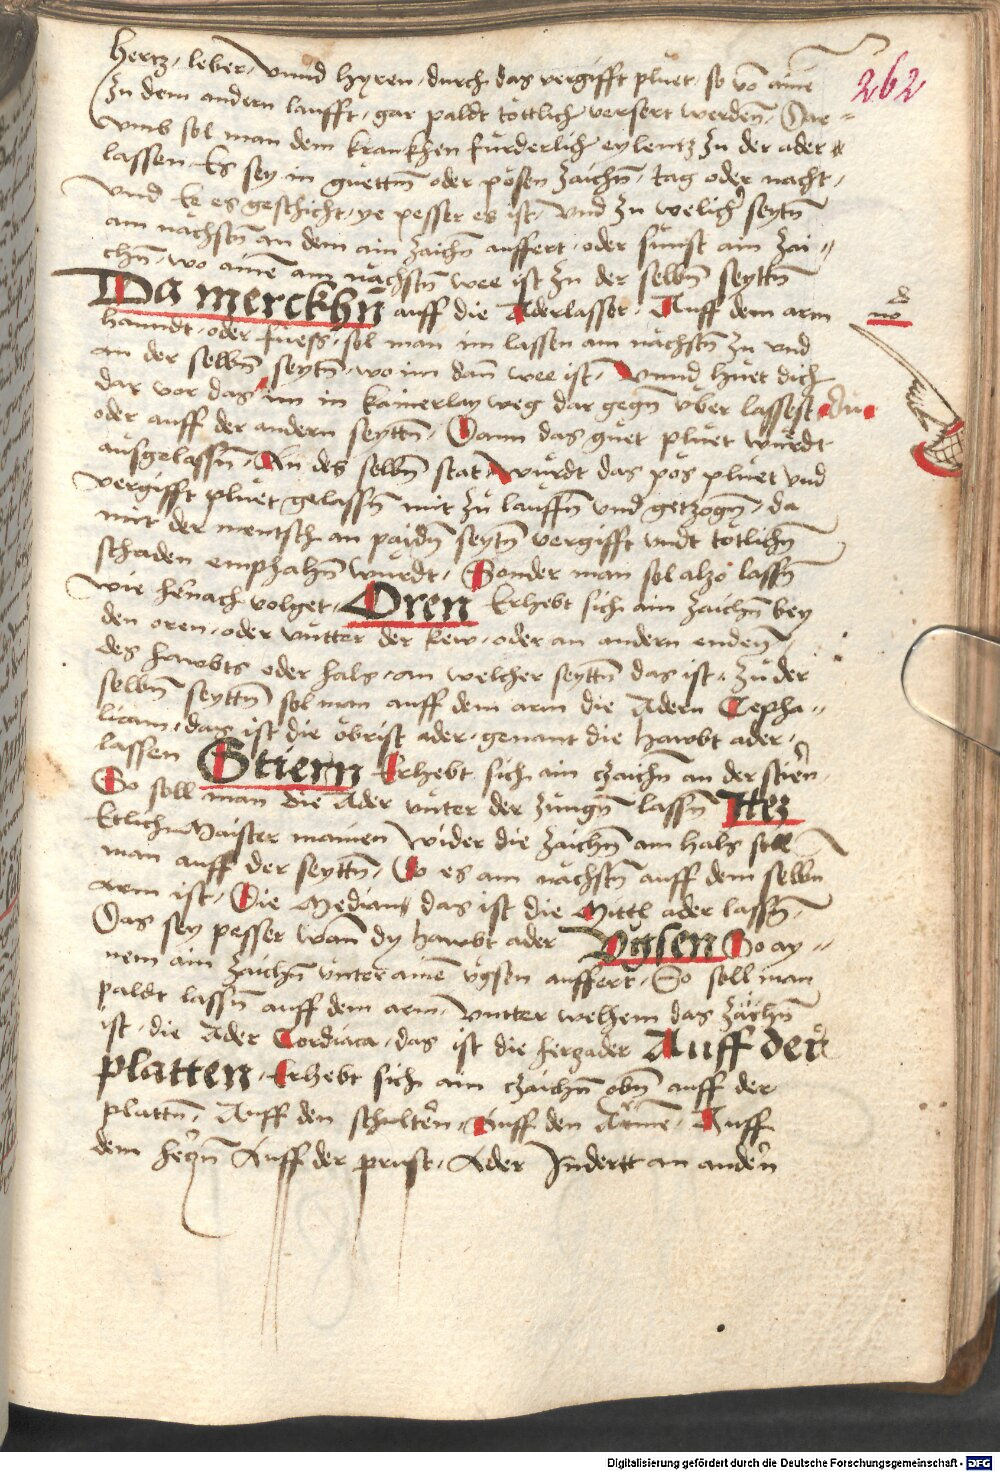 262
hertz, leber, vnnd hyren, durch das vergifft pluet, so vō aine
zu dem andern laufft, gar paldt töttlich versert werden̄, Dar=
vmb sol man dem krankhen fürderlich eylentz zu der ader
lassen, Es sey in guettn̄ oder pösen zaichn̄, tag oder nacht,
Vnd Ee es geschicht, ye pesser es ist, Vnd zu welicher seytn̄
am nächstn̄ an dem ain zaichn̄ auffert, oder sunst ain zai=
chn̄, wo aine am nächstn̄ wee ist zu der selbn̄ seyttn̄
Da merckhn̄ auff die Aderlasser, Auff dem arm
no
d
hanndt, oder fuess, sol man im lassen am nächstn̄ zu vnd
an der selbn̄ seytn̄, wo im dan̄ wee ist, Vnnd huet dich
dar vor das im in kainerlay weg dar gegn̄ vber lassest du
oder auff der andern seyttn̄, Dann das guet pluet wurdt
ausgelassn̄, An des selbn̄ stat, wurdt das pös pluet vnd
vergifft pluet gelassn̄ mit zu lauffn̄ vnd getzogn̄, da
mit der mentsch an paidn̄ seytn̄ vergifft vndt tötlichn̄
schaden emphahn̄ wurdt, Sonder man sol alzo lassn̄
wie hernach volget, Oren Erhebt sich ain zaichn̄ bey
den oren, oder vnter der kew, oder an andern enden̄,
des hawbts oder hals, an welcher seyttn̄ das ist, zu der
selbn̄ seyttn̄ sol man auff dem arm die Adern Cepha=
licam, das ist die öbrist ader, genant die hawbt ader,
lassen Stiern Erhebt sich ain zaichn̄ an der stiern,
So soll man die Ader vnter der zungn̄ lassn̄ Ittez
Etlich Maister mainen wider die zaichn̄ am hals soll
man auff der seyttn̄, So es am nächstn̄ auff dem selbn̄
arm ist, Die Median, das ist die Mittl ader lassn̄,
Das sey pesser wan̄ dy hawbt ader Vgsen So ay=
nem ain zaichn̄ vnter aine vgsen auffert, So soll man
paldt lassn̄ auff dem arm, vnnter welhem das zaichn̄
ist, die Ader Cordiaca, das ist die hertzader Auff der
platten, Erhebt sich ain zaichn̄ obn̄ auff der
plattn̄, Auff den schultern, Auff den Arme, Auff
dem hertzn̄ Auff der prust, Ader Indertt an andern
Digitalisierung gefördert durch die Deutsche Forschungsgemeinschaft - DFG